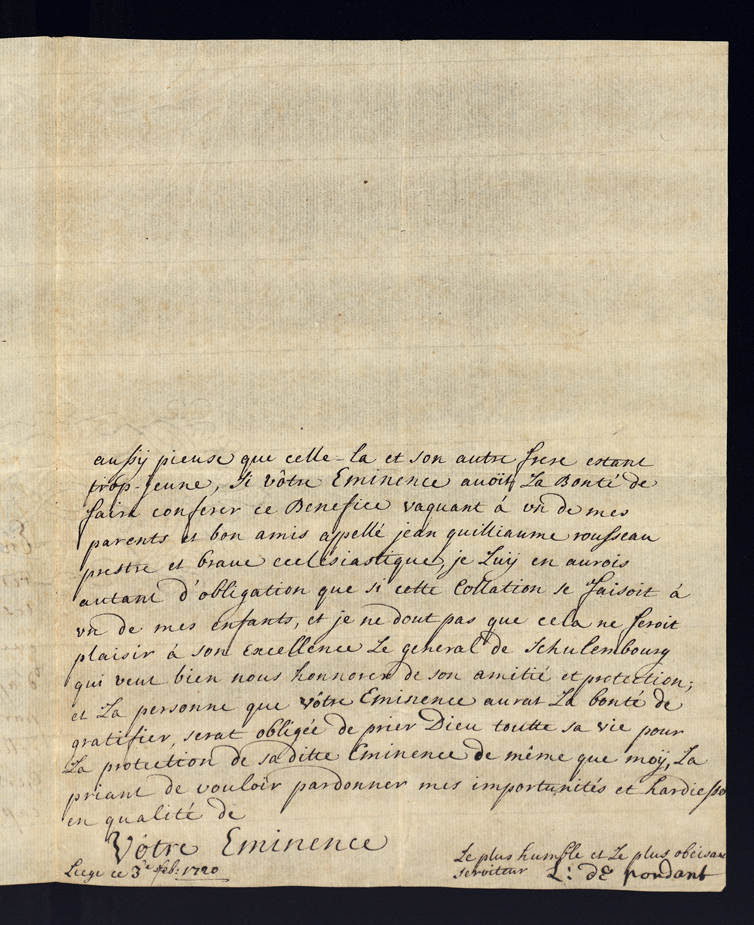 aussÿ pieuse que celle-la et son autre frere estant
trop-jeune, si vôtre Eminence avoit La Bonté de
faire conferer ce Benefice vaquant à vn de mes
parents et bon amis appellé jean guilliaume rousseau
prestre et brave ecclesiastique, je Luÿ en aurois
autant d'obligation que si cette Collation se faisoit à
vn de mes enfants, et je ne dout pas que cela ne feroit
plaisir à son Excellence Le general de Schulembourg
qui veut bien nous honnorer de son amitié et protection;
et La personne que vôtre Eminence aurat La bonté de
gratifier, serat obligée de prier Dieu toutte sa vie pour
La protection de sa ditte Eminence de même que moÿ, La
priant de vouloir pardonner mes importunités et hardiesse
en qualité de
Vôtre Eminence
Le plus humble et Le plus obeisant
Liege ce 3e feb: 1720
serviteur L: de pondant